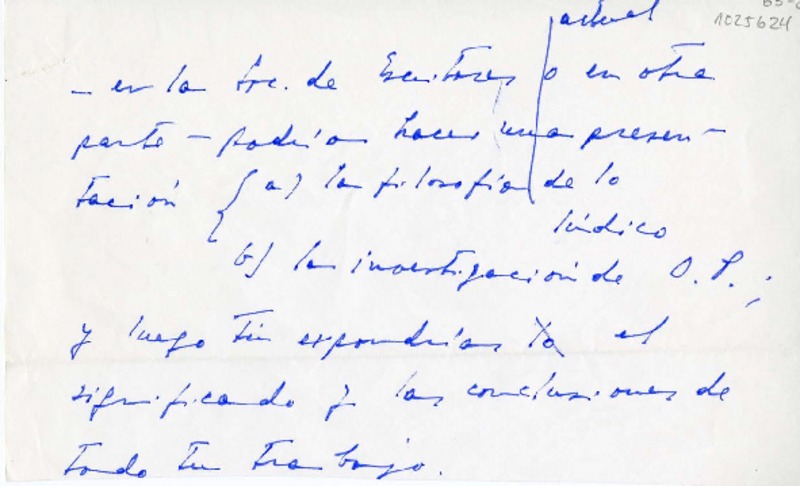 1025624
actual
– en la Soc. de Escritores o en otra
parte – podrías hacer una presen-
tación { a) la filosofía de lo
lúdico
b) la investigación de O. P.;
y luego tú expondrías el
significado y las conclusiones de
todo tu trabajo.